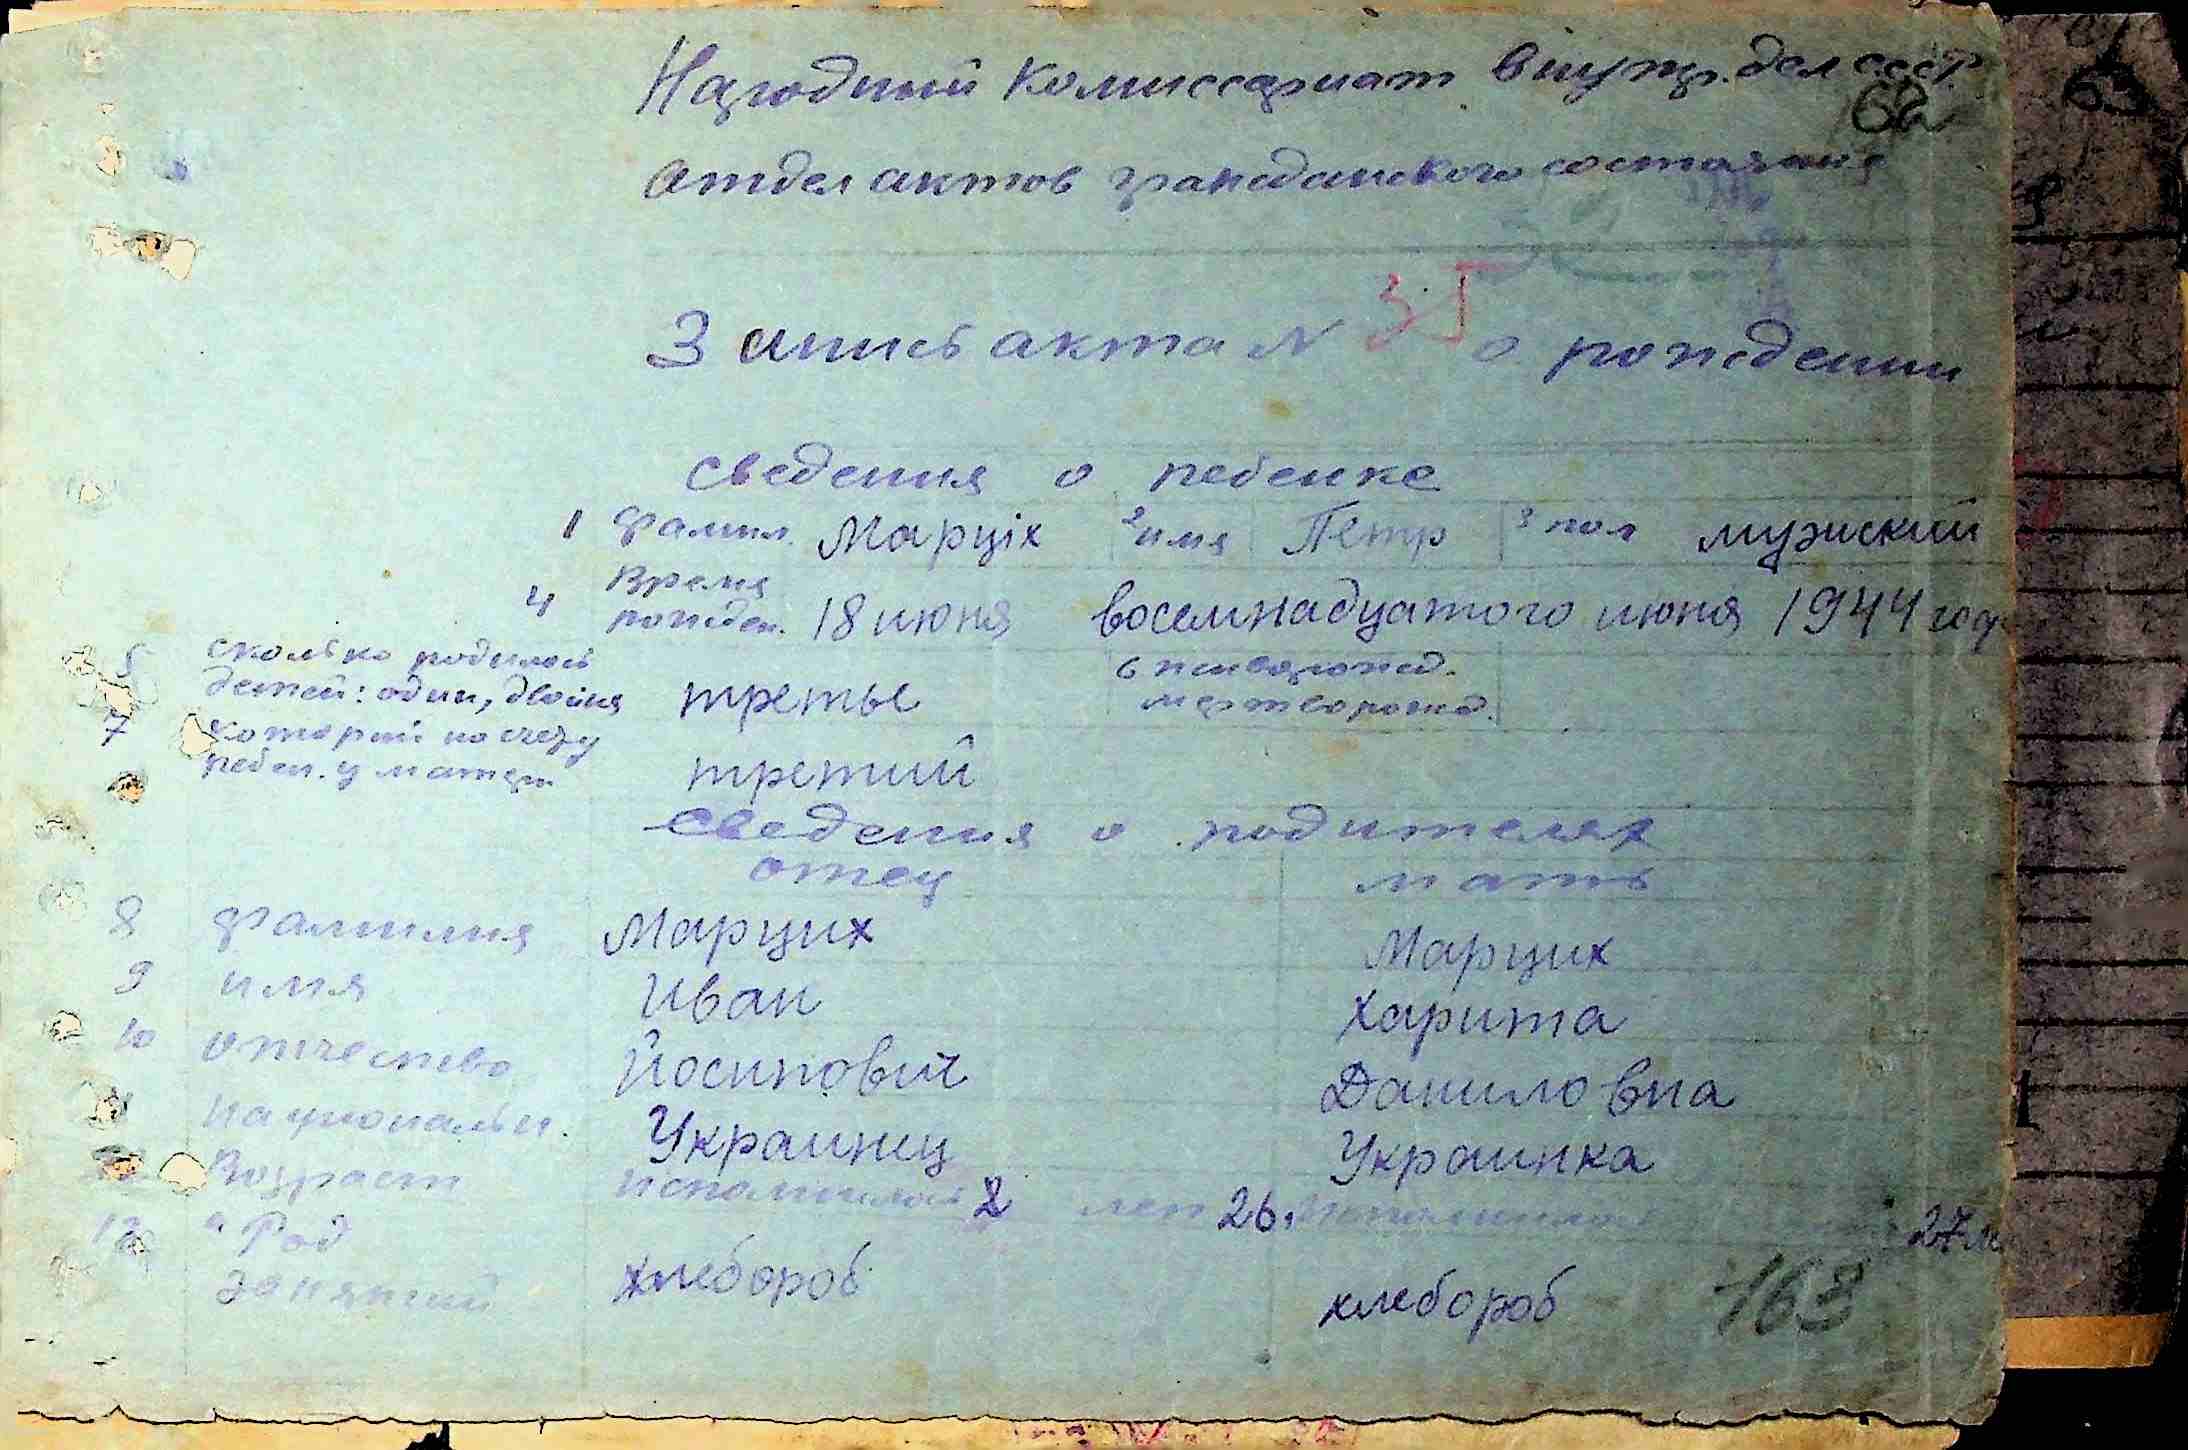 Народний Комиссариат Внутр. дел СССР
62
63
отдел актов гражданского состояния
Запись акта N 35 о рождении
сведения о ребенке
1 фамил. Марціх 2 имя Петр 3 пол мужский
4 Время рожден. 18 июня восемнадцатого июня 1944 год
5 сколько родилось
детей: один, двойня третье 6 живорожд.
мертворожд.
7 которий по счету
ребен. у матери третий
Сведения о родителях
отец мать
8 фамилия Марцих Марцих
9 имя Иван Харита
10 отчество Йосипович Даниловна
национальн. Украинец Украинка
Возраст исполнилось лет 26. исполнилось 27 л
13 Род
занятий хлебороб хлебороб
163